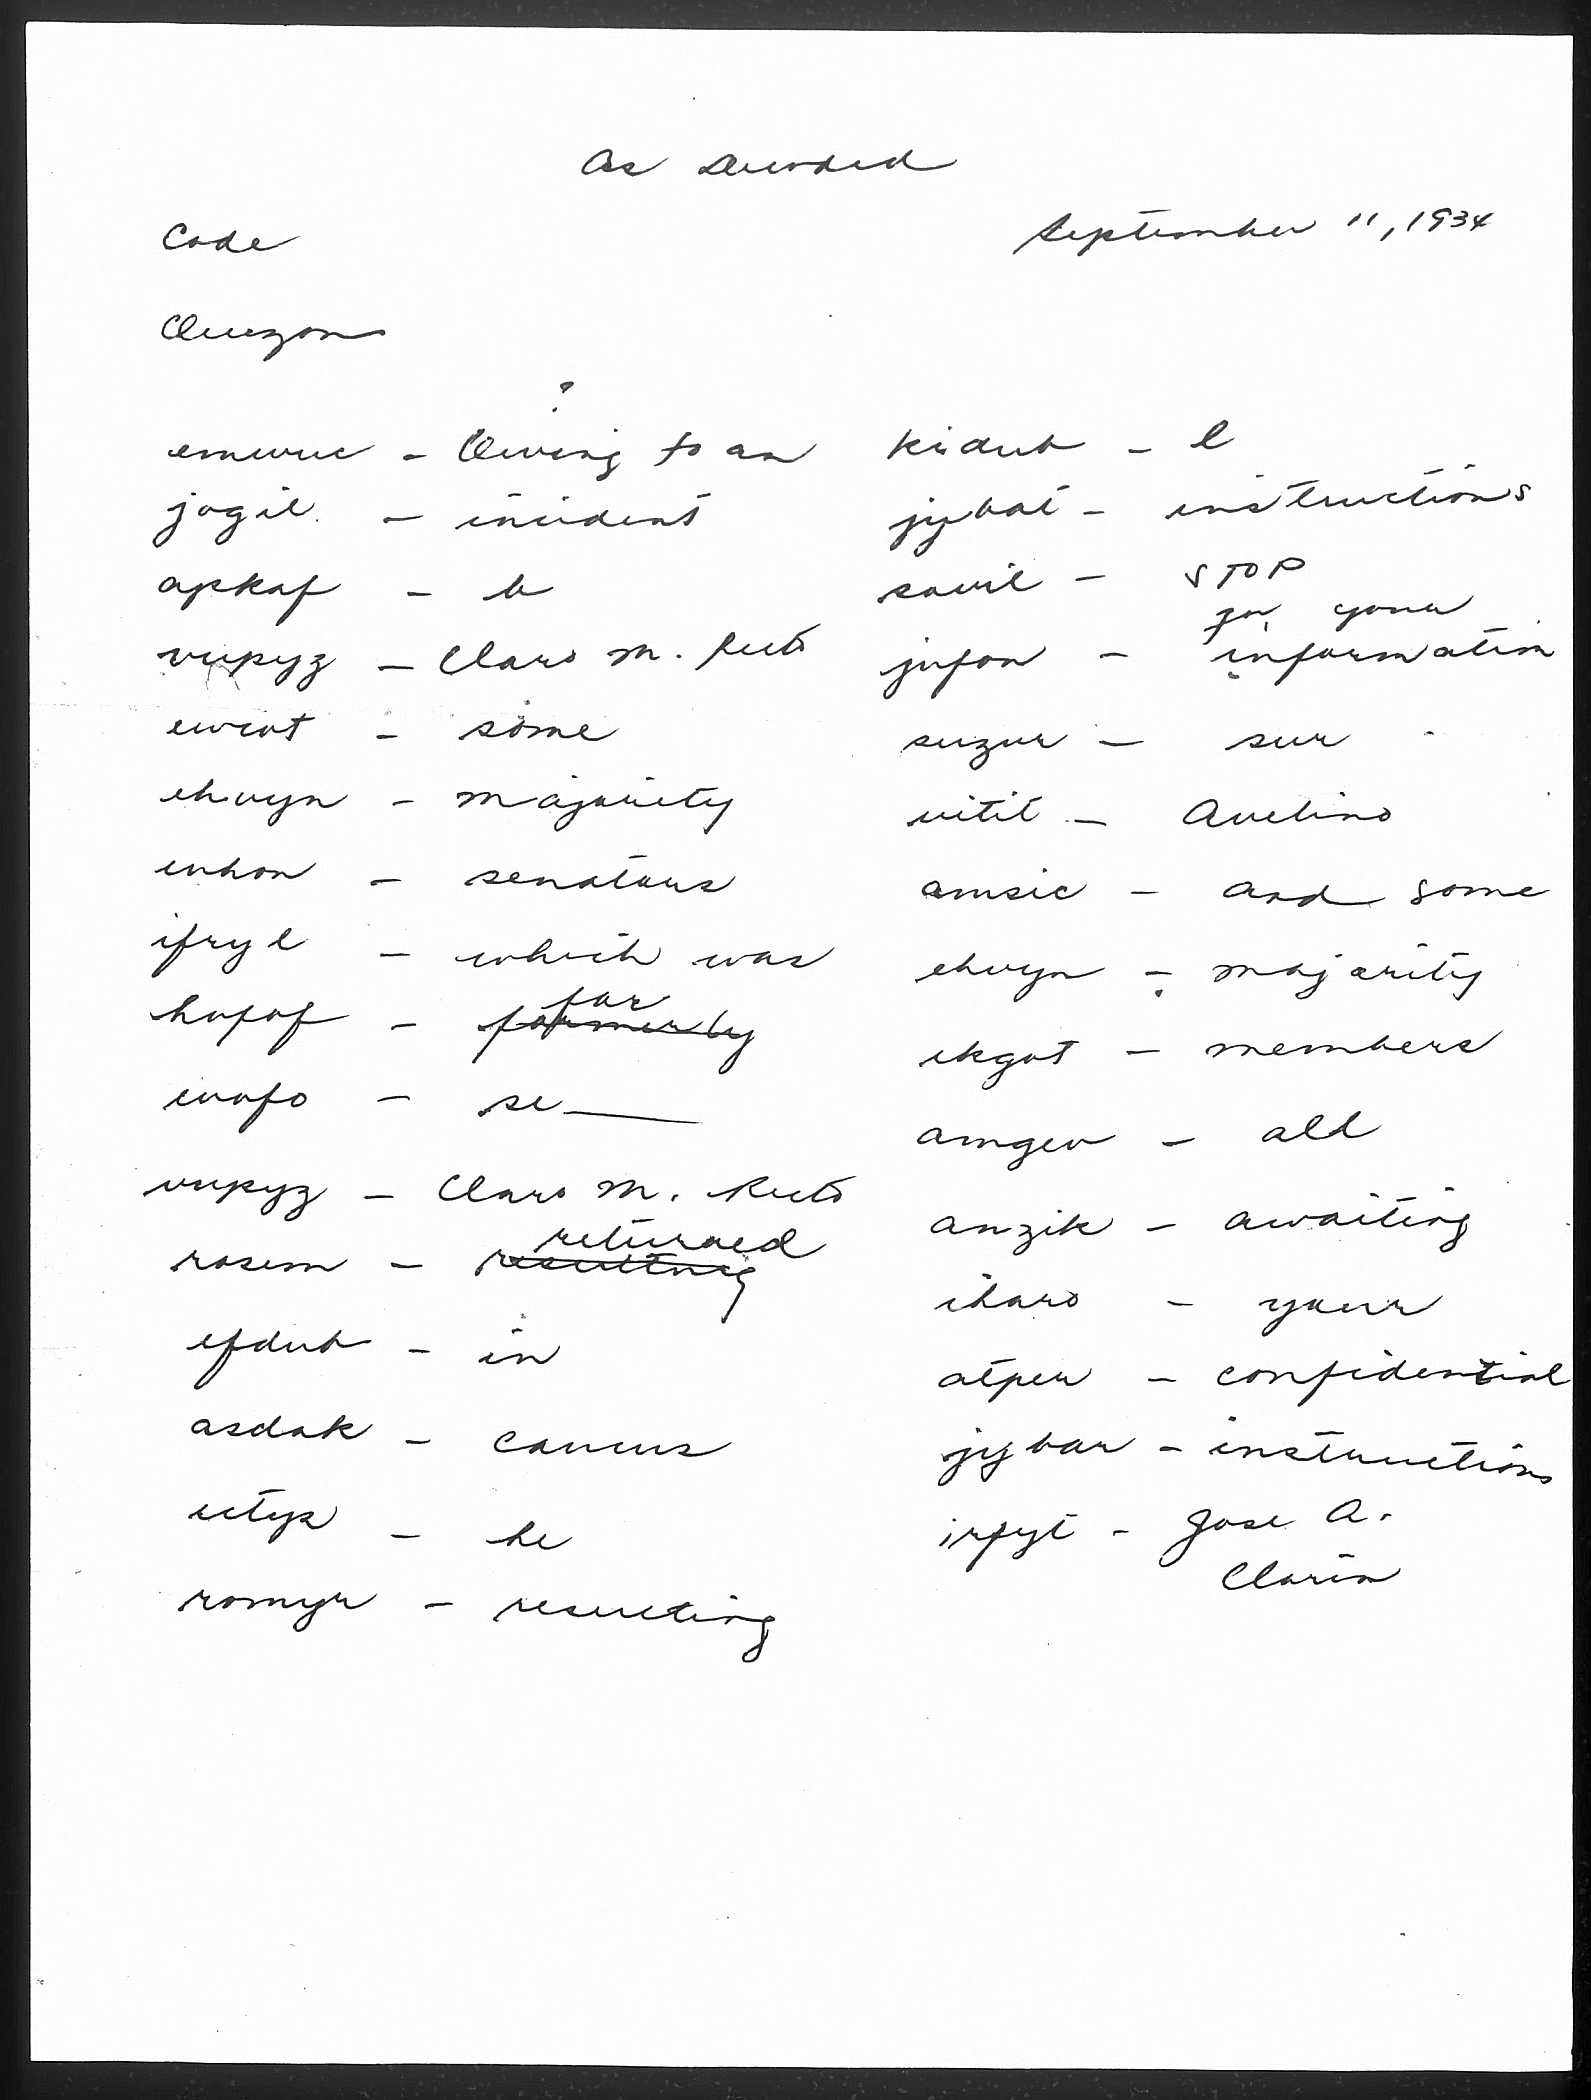 As Decoded
Code
September 11, 1934
Quezon
?
emwuc - Owing to an
jogil - incident
apkaf - b
vupyz - Claro M. Recto
ewcot - some
ehvyn - majority
enhon - senators
ifryl - which was
for
hofof - formerly
evofo - se
vupyz - Claro M. Recto
returned
rosem - resulting
efdub - in
asdak - caucus
ectyp - he
romyr - resulting
kidub - l
jybat - instructions
savil - STOP
for your
jufon - information
suzur - sur
vitil - Avelino
amsic - and some
ehvyn - majority
ekgot - members
amgev - all
anzik - awaiting
iharo - your
atpeu - confidential
jybar - instructions
irpyt - Jose A.
Clarin